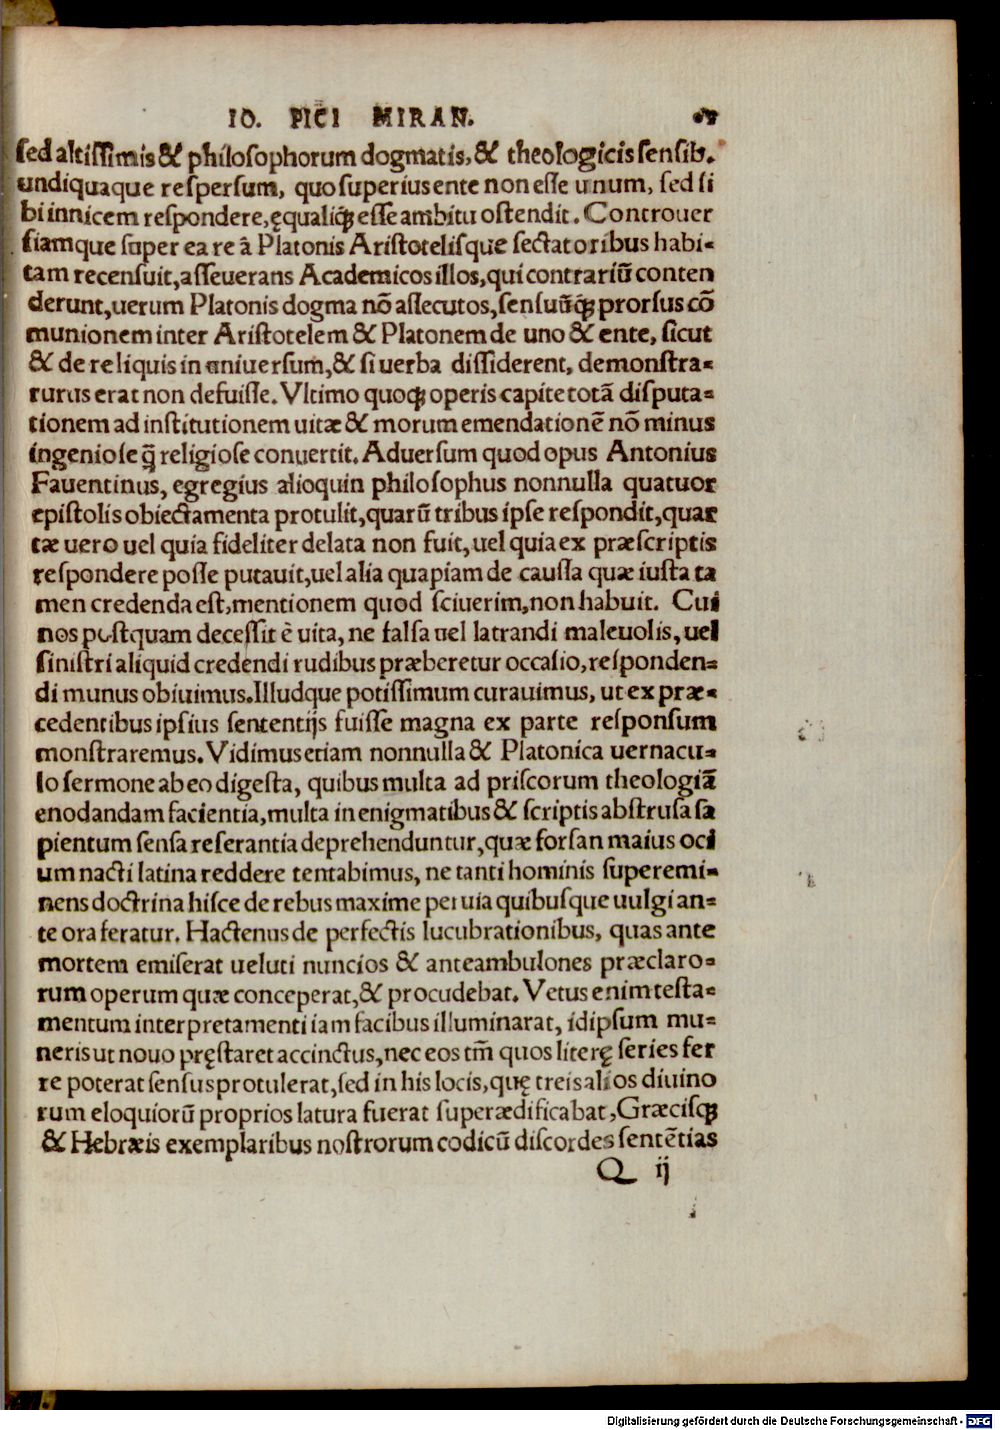 IO. PICI MIRAN.
sed altissimis & philosophorum dogmatis, & theologicis sensib.
undiquaque respersum, quo superius ente non esse unum, sed si
bi innicem respondere, ęqualiq́ esse ambitu ostendit. Controuer
siamque super ea re à Platonis Aristotelisque sectatoribus habi-
tam recensuit, asseuerans Academicos illos, qui contrariū conten
derunt, uerum Platonis dogma nō assecutos, sensuūq́ prorsus cō
munionem inter Aristotelem & Platonem de uno & ente, sicut
& de reliquis in uniuersum, & si uerba dissiderent, demonstra-
rurus erat non defuisse. Vltimo quoq; operis capite totā disputa-
tionem ad institutionem uitæ & morum emendationē nō minus
ingeniose q̄ religiose conuertit. Aduersum quod opus Antonius
Fauentinus, egregius alioquin philosophus nonnulla quatuor
epistolis obiectamenta protulit, quarū tribus ipse respondit, quar
tæ uero uel quia fideliter delata non fuit, uel quia ex præscriptis
respondere posse putauit, uel alia quapiam de caussa quæ iusta ta
men credenda est, mentionem quod sciuerim, non habuit. Cui
nos postquam decessit è uita, ne falsa uel latrandi maleuolis, uel
sinistri aliquid credendi rudibus præberetur occasio, responden-
di munus obiuimus. Illudque potissimum curauimus, ut ex præ-
cedentibus ipsius sententijs fuisse magna ex parte responsum
monstraremus. Vidimus etiam nonnulla & Platonica uernacu-
lo sermone ab eo digesta, quibus multa ad priscorum theologiā
enodandam facientia, multa in enigmatibus & scriptis abstrusa sa
pientum sensa reserantia deprehenduntur, quæ forsan maius oci
um nacti latina reddere tentabimus, ne tanti hominis superemi-
nens doctrina hisce de rebus maxime peruia quibusque uulgi an-
te ora feratur. Hactenus de perfectis lucubrationibus, quas ante
mortem emiserat ueluti nuncios & anteambulones præclaro-
rum operum quæ conceperat, & procudebat. Vetus enim testa-
mentum interpretamenti iam facibus illuminarat, idipsum mu-
neris ut nouo pręstaret accinctus, nec eos tm̄ quos literę series fer
re poterat sensus protulerat, sed in his locis, quę treis alios diuino
rum eloquiorū proprios latura fuerat superædificabat, Græcisq́
& Hebræis exemplaribus nostrorum codicū discordes sentētias
Q ij
Digitalisierung gefördert durch die Deutsche Forschungsgemeinschaft - DFG